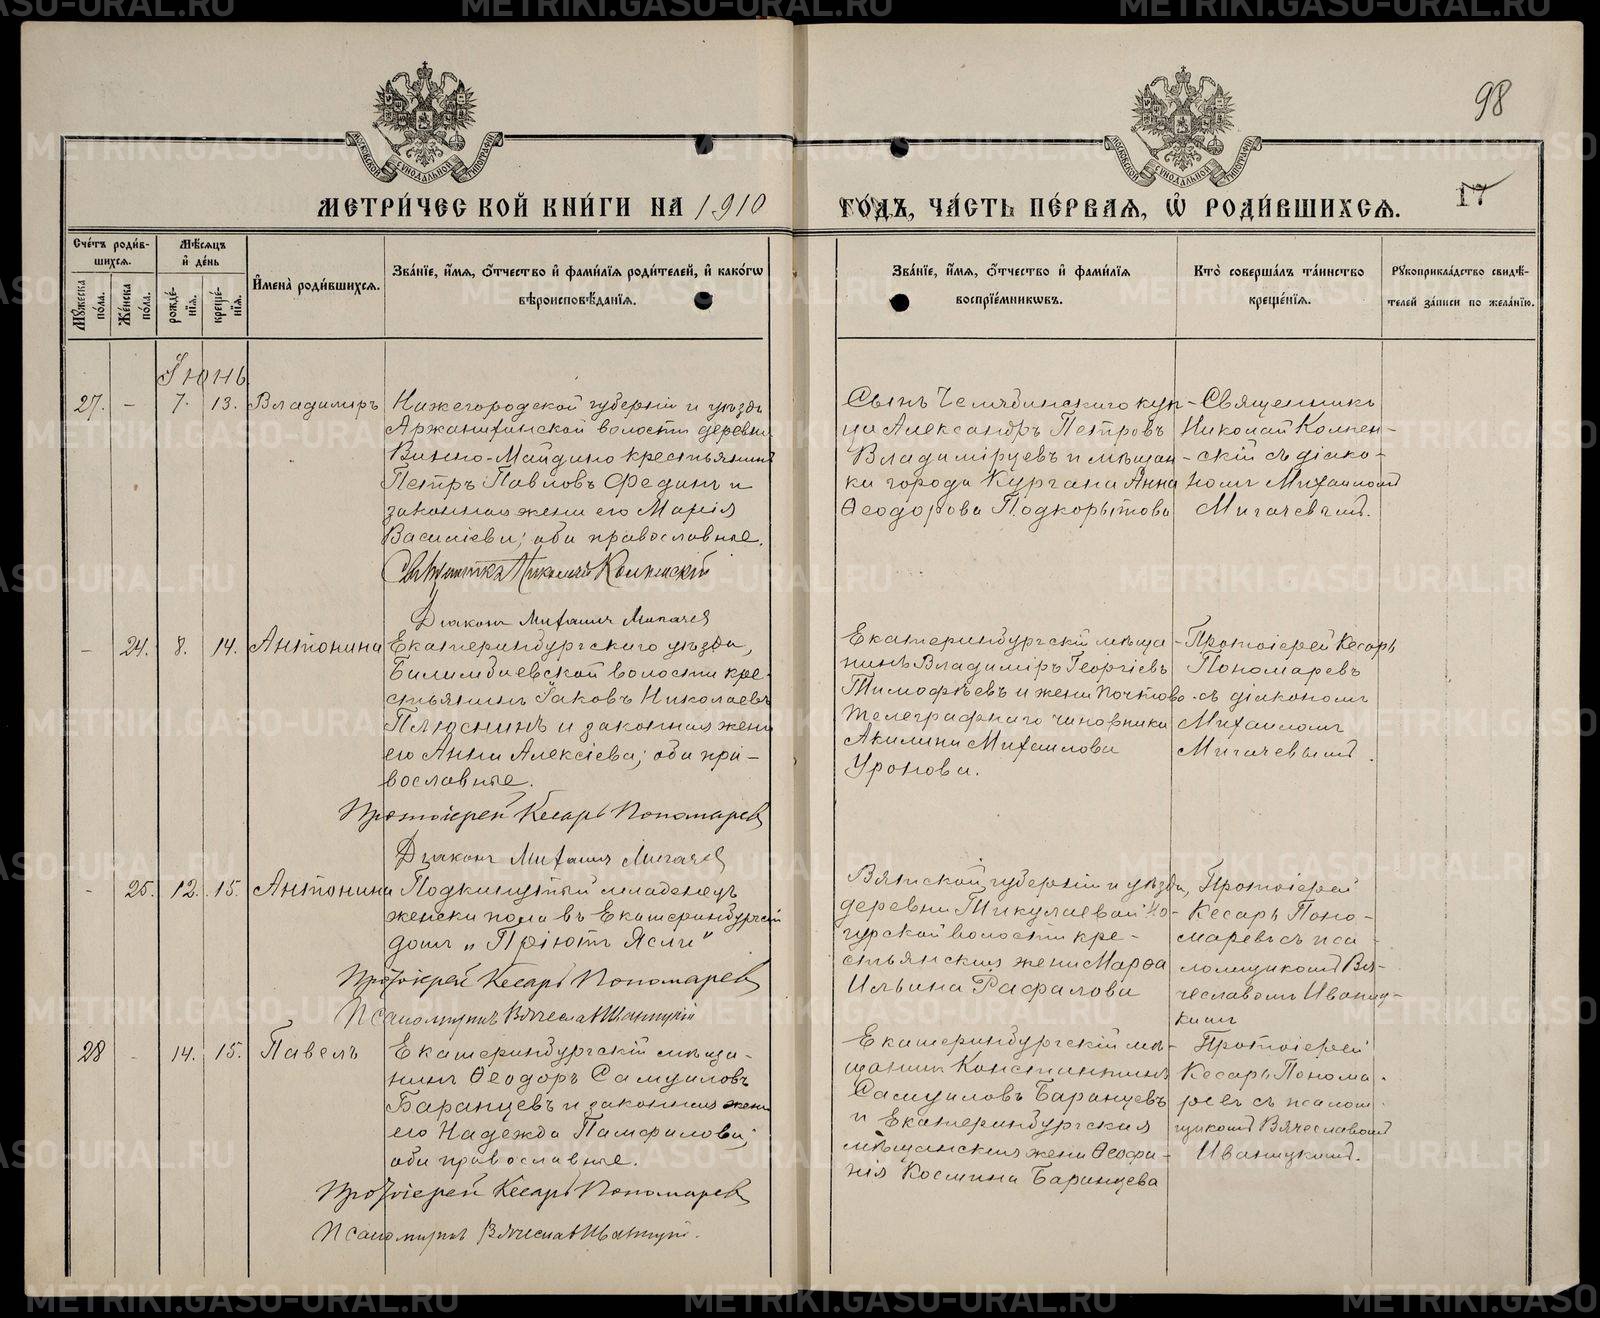 98
МЕТРИЧЕСКОЙ КНИГИ НА 1910
ГОДЪ, ЧАСТЬ ПЕРВАЯ, Ѡ РОДИВШИХСЯ.
17
Счетъ родив-
шихся.
Мужеска
пола.
Женска
пола.
Мѣсяцъ
и день
рожде-
нія.
креще-
нія.
Имена родившихся.
Званіе, имя, отчество и фамилія родителей, и какогѡ
вѣроисповѣданія.
Званіе, имя, отчество и фамилія
воспріемникѡвъ.
Кто совершалъ таинство
крещенія.
Рукоприкладство свидѣ-
телей записи по желанію.
Іюнь
27. - 7. 13. Владимиръ
Нижегородской губерніи и уѣзда
волости деревни
Винно-Майдино крестьянинъ
Петръ Павловъ Фединъ и
законная жена его Марія
Васильева; оба православные.
Священникъ Николай
Діаконъ Михаилъ Мигачевъ
Сынъ Челябинскаго куп-
ца Александръ Петровъ
Владимірцевъ и мѣщан-
ка города Кургана Анна
Ѳеодорова Подкорытова
Священникъ
Николай
скій съ діако-
номъ Михаиломъ
Мигачевымъ.
- 24. 8. 14. Антонина
Екатеринбургскаго уѣзда,
Билимбаевской волости кре-
стьянинъ Іаковъ Николаевъ
Плюснинъ и законная жена
его Анна Алексіева; оба пра-
вославные.
Протоіерей Кесарь Пономаревъ
Діаконъ Михаилъ Мигачевъ
Екатеринбургскій мѣща-
нинъ Владиміръ Георгіевъ
Тимофѣевъ и жена почтово-
телеграфнаго чиновника
Акилина Михаилова
Уронова.
Протоіерей Кесарь
Пономаревъ
съ діакономъ
Михаиломъ
Мигачевымъ.
- 25. 12. 15. Антонина
Подкинутый младенецъ
женска пола въ Екатеринбургскій
домъ „Пріютъ Ясли"
Протоіерей Кесарь Пономаревъ
Псаломщикъ Вячеславъ Иваницкій
Вятской губерніи и уѣзда,
деревни Тикулаевой
волости кре-
стьянская жена Марѳа
Ильина Рафалова
Протоіерей
Кесарь Поно-
маревъ съ пса-
ломщикомъ Вя-
чеславомъ Иваниц-
кимъ
28 - 14. 15. Павелъ
Екатеринбургскій мѣща-
нинъ Ѳеодоръ Самуиловъ
Баранцевъ и законная жена
его Надежда Памфилова;
оба православные.
Протоіерей Кесарь Пономаревъ
Псаломщикъ Вячеславъ Иваницкій.
Екатеринбургскій мѣ-
щанинъ Константинъ
Самуиловъ Баранцевъ
и Екатеринбургская
мѣщанская жена Ѳеофа-
нія Космина Баранцева
Протоіерей
Кесарь Понома-
ревъ съ псалом-
щикомъ Вячеславомъ
Иваницкимъ.